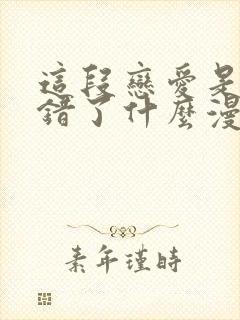 這段戀愛是
錯了什麼漫
素年瑾時